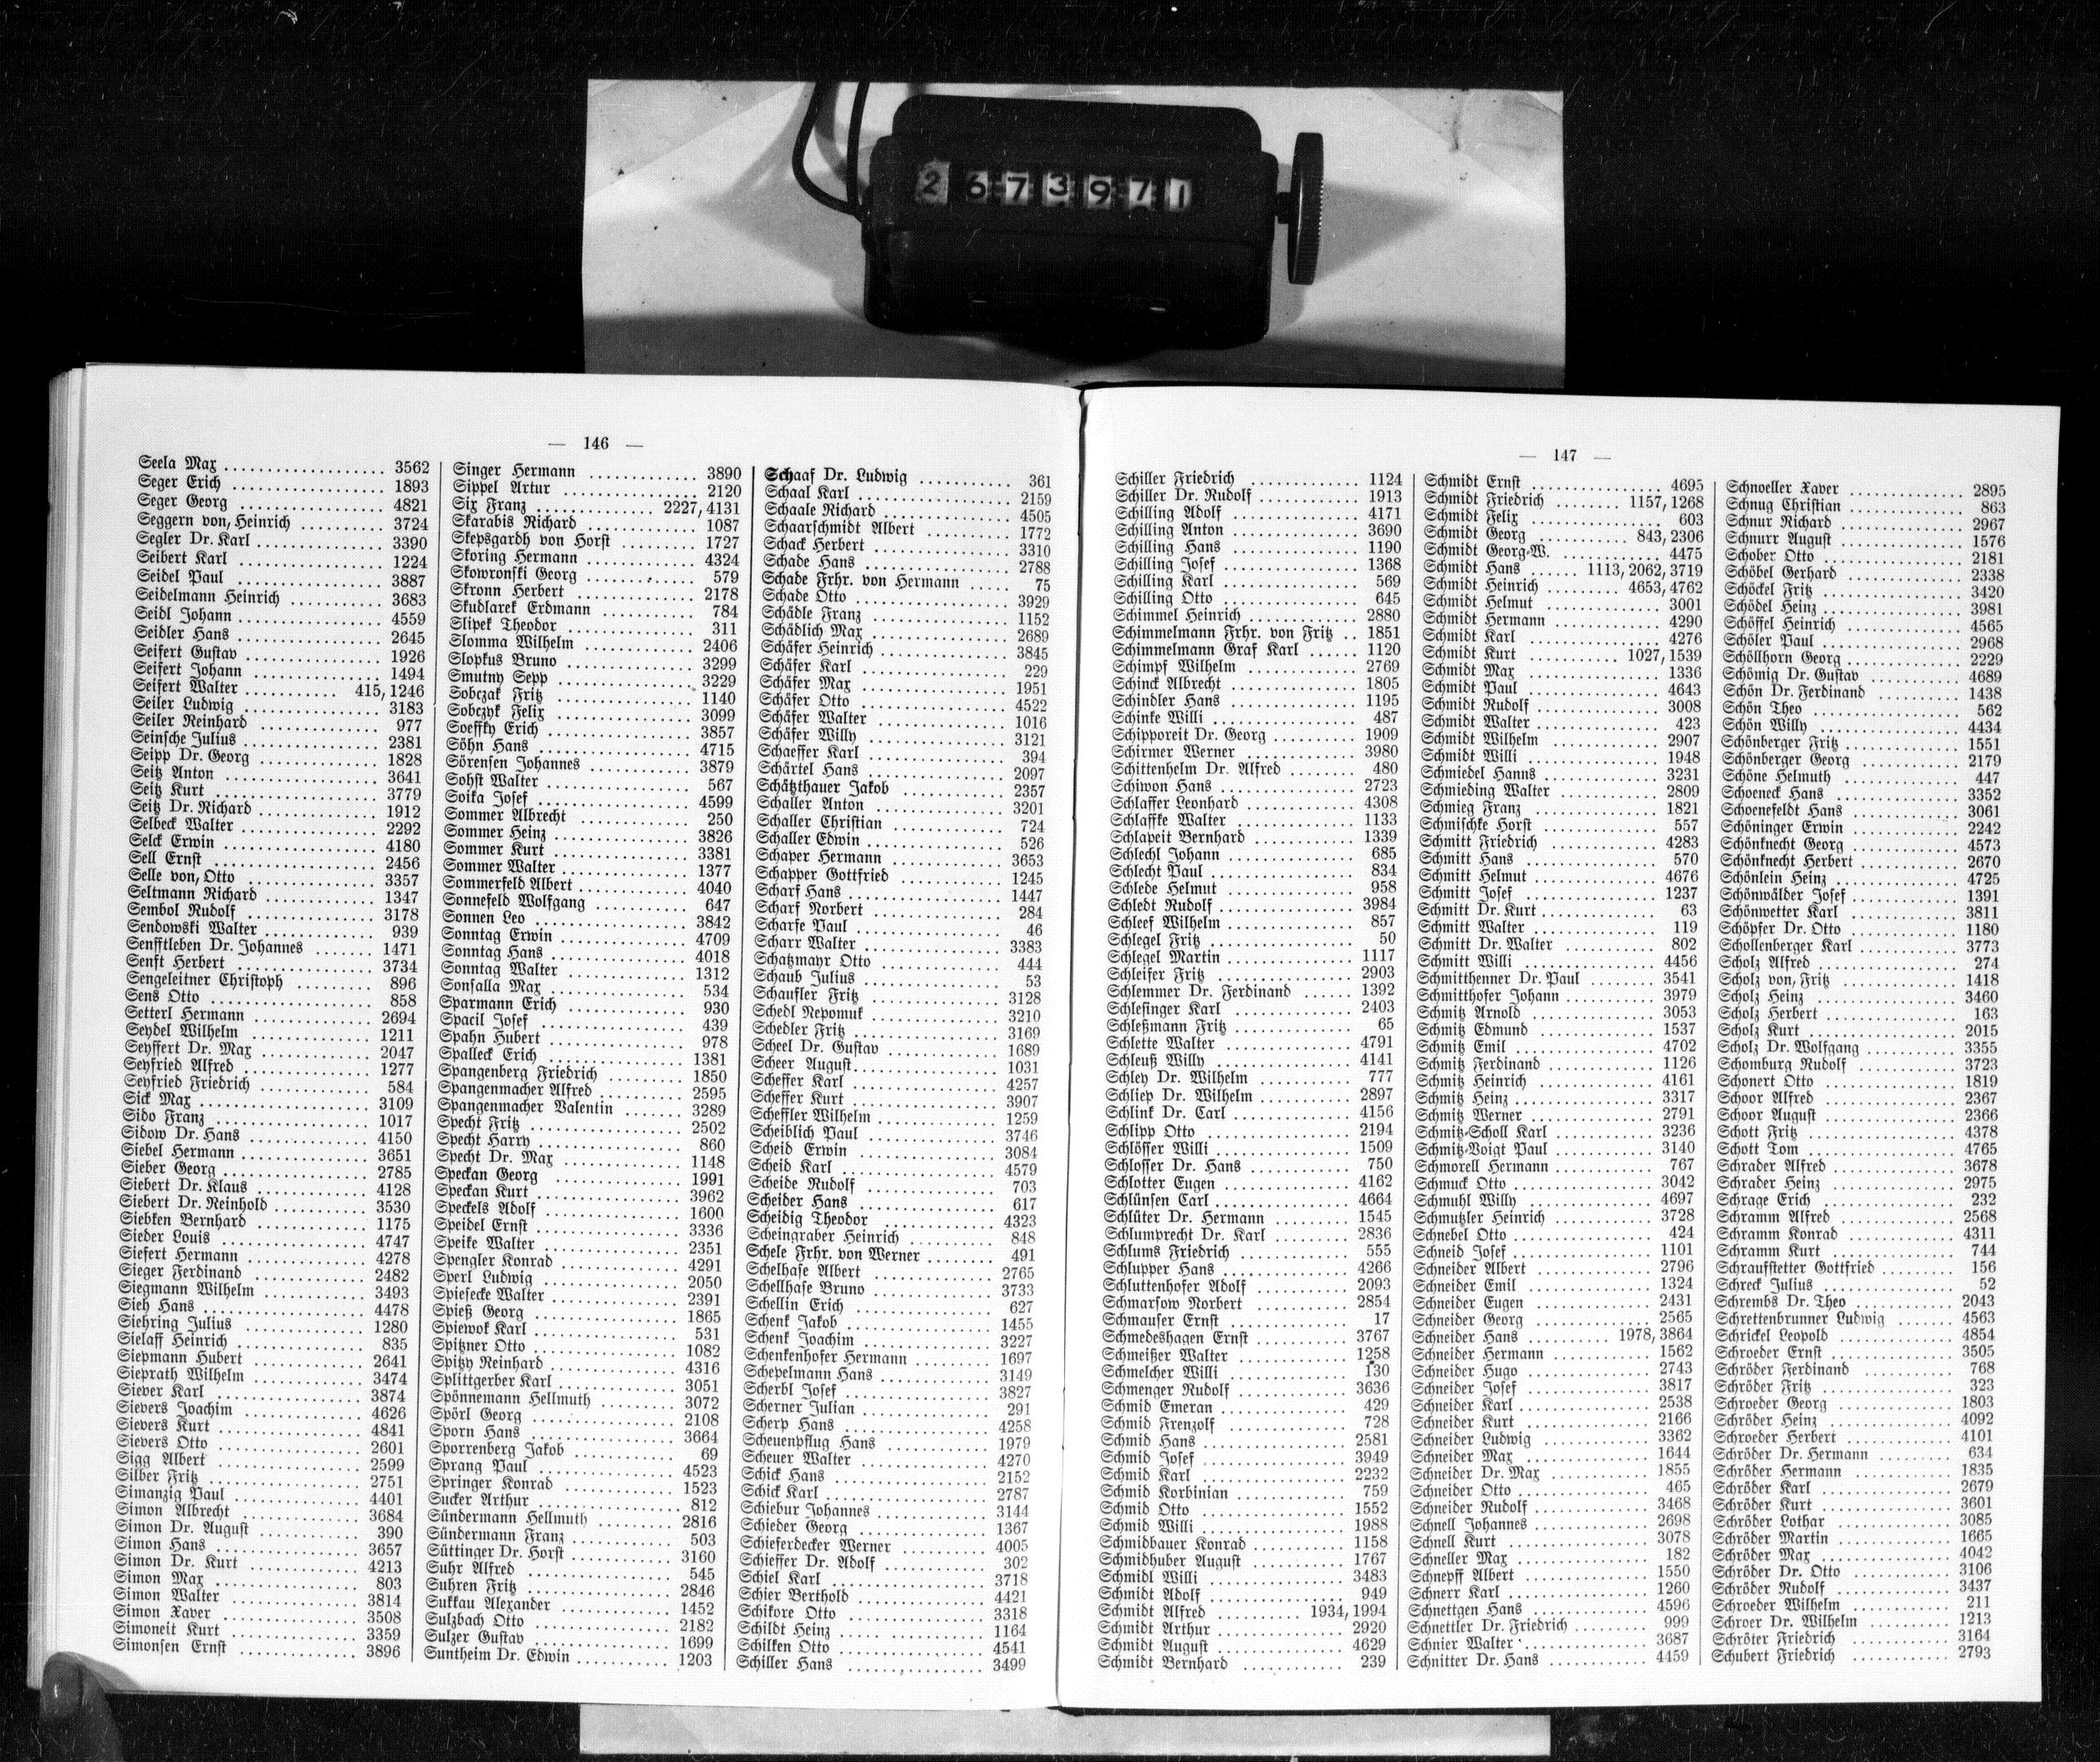 2673971
— 146 —
Seela Max .................. 3562
Seger Erich .................. 1893
Seger Georg .................. 4821
Seggern von, Heinrich .......... 3724
Segler Dr. Karl ................ 3390
Seibert Karl .................. 1224
Seidel Paul .................. 3887
Seidelmann Heinrich ............ 3683
Seidl Johann .................. 4559
Seidler Hans .................. 2645
Seifert Gustav ................ 1926
Seifert Johann ................ 1494
Seifert Walter ........... 415, 1246
Seiler Ludwig ................ 3183
Seiler Reinhard ................ 977
Seinsche Julius ................ 2381
Seipp Dr. Georg ................ 1828
Seitz Anton .................. 3641
Seitz Kurt .................. 3779
Seitz Dr. Richard .............. 1912
Selbeck Walter ................ 2292
Selck Erwin .................. 4180
Sell Ernst .................. 2456
Selle von, Otto ................ 3357
Seltmann Richard .............. 1347
Sembol Rudolf ................ 3178
Sendowski Walter .............. 939
Senfftleben Dr. Johannes ........ 1471
Senft Herbert ................ 3734
Sengeleitner Christoph .......... 896
Sens Otto .................. 858
Setterl Hermann .............. 2694
Seydel Wilhelm .............. 1211
Seyffert Dr. Max .............. 2047
Seyfried Alfred .............. 1277
Seyfried Friedrich ............ 584
Sick Max .................. 3109
Sido Franz .................. 1017
Sidow Dr. Hans .............. 4150
Siebel Hermann .............. 3651
Sieber Georg ................ 2785
Siebert Dr. Klaus .............. 4128
Siebert Dr. Reinhold ............ 3530
Siebken Bernhard .............. 1175
Sieder Louis ................ 4747
Siefert Hermann .............. 4278
Sieger Ferdinand .............. 2482
Siegmann Wilhelm ............ 3493
Sieh Hans .................. 4478
Siehring Julius .............. 1280
Sielaff Heinrich .............. 835
Siepmann Hubert ............ 2641
Sieprath Wilhelm ............ 3474
Siever Karl ................ 3874
Sievers Joachim .............. 4626
Sievers Kurt ................ 4841
Sievers Otto ................ 2601
Sigg Albert ................ 2599
Silber Fritz ................ 2751
Simanzig Paul .............. 4401
Simon Albrecht .............. 3684
Simon Dr. August ............ 390
Simon Hans ................ 3657
Simon Dr. Kurt .............. 4213
Simon Max ................ 803
Simon Walter .............. 3814
Simon Xaver .............. 3508
Simoneit Kurt .............. 3359
Simonsen Ernst .............. 3896
Singer Hermann .............. 3890
Sippel Artur ................ 2120
Six Franz .............. 2227, 4131
Skarabis Richard .............. 1087
Skepsgardh von Horst .......... 1727
Skoring Hermann .............. 4324
Skowronski Georg .............. 579
Skronn Herbert .............. 2178
Skudlarek Erdmann ............ 784
Slipek Theodor .............. 311
Slomma Wilhelm .............. 2406
Slopkus Bruno .............. 3299
Smutny Sepp .............. 3229
Sobczak Fritz .............. 1140
Sobczyk Felix .............. 3099
Soeffky Erich .............. 3857
Söhn Hans ................ 4715
Sörensen Johannes ............ 3879
Sohst Walter .............. 567
Soika Josef ................ 4599
Sommer Albrecht ............ 250
Sommer Heinz .............. 3826
Sommer Kurt .............. 3381
Sommer Walter ............ 1377
Sommerfeld Albert .......... 4040
Sonnefeld Wolfgang .......... 647
Sonnen Leo ................ 3842
Sonntag Erwin .............. 4709
Sonntag Hans .............. 4018
Sonntag Walter ............ 1312
Sonsalla Max .............. 534
Sparmann Erich ............ 930
Spacil Josef .............. 439
Spahn Hubert .............. 978
Spalleck Erich ............ 1381
Spangenberg Friedrich ........ 1850
Spangenmacher Alfred ........ 2595
Spangenmacher Valentin ...... 3289
Specht Fritz .............. 2502
Specht Harry .............. 860
Specht Dr. Max ............ 1148
Speckan Georg ............ 1991
Speckan Kurt .............. 3962
Speckels Adolf ............ 1600
Speidel Ernst ............ 3336
Speike Walter ............ 2351
Spengler Konrad .......... 4291
Sperl Ludwig ............ 2050
Spiesecke Walter .......... 2391
Spieß Georg .............. 1865
Spiewok Karl ............ 531
Spitzner Otto ............ 1082
Spitzy Reinhard .......... 4316
Splittgerber Karl .......... 3051
Spönnemann Hellmuth ........ 3072
Spörl Georg .............. 2108
Sporn Hans .............. 3664
Sporrenberg Jakob .......... 69
Sprang Paul .............. 4523
Springer Konrad .......... 1523
Sucker Arthur ............ 812
Sündermann Hellmuth ........ 2816
Sündermann Franz .......... 503
Süttinger Dr. Horst .......... 3160
Suhr Alfred .............. 545
Suhren Fritz .............. 2846
Sukkau Alexander .......... 1452
Sulzbach Otto ............ 2182
Sulzer Gustav ............ 1699
Suntheim Dr. Edwin .......... 1203
Schaaf Dr. Ludwig .......... 361
Schaal Karl .............. 2159
Schaale Richard ............ 4505
Schaarschmidt Albert ........ 1772
Schack Herbert ............ 3310
Schade Hans .............. 2788
Schade Frhr. von Hermann .... 75
Schade Otto .............. 3929
Schädle Franz ............ 1152
Schädlich Max ............ 2689
Schäfer Heinrich .......... 3845
Schäfer Karl ............ 229
Schäfer Max ............ 1951
Schäfer Otto ............ 4522
Schäfer Walter .......... 1016
Schäfer Willy .......... 3121
Schaeffer Karl .......... 394
Schärtel Hans .......... 2097
Schätzthauer Jakob ........ 2357
Schaller Anton .......... 3201
Schaller Christian ........ 724
Schaller Edwin .......... 526
Schaper Hermann .......... 3653
Schapper Gottfried ........ 1245
Scharf Hans ............ 1447
Scharf Norbert .......... 284
Scharfe Paul ............ 46
Scharr Walter .......... 3383
Schatzmayr Otto .......... 444
Schaub Julius .......... 53
Schaufler Fritz .......... 3128
Schedl Nepomuk .......... 3210
Schedler Fritz .......... 3169
Scheel Dr. Gustav ........ 1689
Scheer August .......... 1031
Scheffer Karl .......... 4257
Scheffer Kurt .......... 3907
Scheffler Wilhelm ........ 1259
Scheiblich Paul .......... 3746
Scheid Erwin .......... 3084
Scheid Karl ............ 4579
Scheide Rudolf .......... 703
Scheider Hans .......... 617
Scheidig Theodor ........ 4323
Scheingraber Heinrich ...... 848
Schele Frhr. von Werner .... 491
Schelhase Albert ........ 2765
Schellhase Bruno ........ 3733
Schellin Erich .......... 627
Schenk Jakob .......... 1455
Schenk Joachim ........ 3227
Schenkenhofer Hermann .... 1697
Schepelmann Hans ........ 3149
Scherbl Josef .......... 3827
Scherner Julian ........ 291
Scherp Hans .......... 4258
Scheuenpflug Hans ........ 1979
Scheuer Walter ........ 4270
Schick Hans .......... 2152
Schick Karl .......... 2787
Schiebur Johannes ...... 3144
Schieder Georg ........ 1367
Schieferdecker Werner .... 4005
Schieffer Dr. Adolf ...... 302
Schiel Karl .......... 3718
Schier Berthold ........ 4421
Schikore Otto ........ 3318
Schildt Heinz ........ 1164
Schilken Otto ........ 4541
Schiller Hans ........ 3499
— 147 —
Schiller Friedrich ............ 1124
Schiller Dr. Rudolf .......... 1913
Schilling Adolf ............ 4171
Schilling Anton ............ 3690
Schilling Hans ............ 1190
Schilling Josef ............ 1368
Schilling Karl ............ 569
Schilling Otto ............ 645
Schimmel Heinrich .......... 2880
Schimmelmann Frhr. von Fritz .. 1851
Schimmelmann Graf Karl ...... 1120
Schimpf Wilhelm .......... 2769
Schinck Albrecht .......... 1805
Schindler Hans ............ 1195
Schinke Willi ............ 487
Schipporeit Dr. Georg ........ 1909
Schirmer Werner .......... 3980
Schittenhelm Dr. Alfred ...... 480
Schiwon Hans ............ 2723
Schlaffer Leonhard .......... 4308
Schlaffke Walter .......... 1133
Schlapeit Bernhard .......... 1339
Schlechl Johann .......... 685
Schlecht Paul ............ 834
Schlede Helmut .......... 958
Schledt Rudolf .......... 3984
Schleef Wilhelm .......... 857
Schlegel Fritz .......... 50
Schlegel Martin .......... 1117
Schleifer Fritz .......... 2903
Schlemmer Dr. Ferdinand ...... 1392
Schlesinger Karl .......... 2403
Schleßmann Fritz .......... 65
Schlette Walter .......... 4791
Schleuß Willy .......... 4141
Schley Dr. Wilhelm ........ 777
Schliep Dr. Wilhelm ........ 2897
Schlink Dr. Carl .......... 4156
Schlipp Otto ............ 2194
Schlösser Willi .......... 1509
Schlosser Dr. Hans ........ 750
Schlotter Eugen .......... 4162
Schlünsen Carl .......... 4664
Schlüter Dr. Hermann ...... 1545
Schlumprecht Dr. Karl ...... 2836
Schlums Friedrich ........ 555
Schlupper Hans .......... 4266
Schluttenhofer Adolf ...... 2093
Schmarsow Norbert ........ 2854
Schmauser Ernst .......... 17
Schmedeshagen Ernst ...... 3767
Schmeißer Walter ........ 1258
Schmelcher Willi ........ 130
Schmenger Rudolf ........ 3636
Schmid Emeran .......... 429
Schmid Frenzolf ........ 728
Schmid Hans .......... 2581
Schmid Josef .......... 3949
Schmid Karl .......... 2232
Schmid Korbinian ........ 759
Schmid Otto .......... 1552
Schmid Willi .......... 1988
Schmidbauer Konrad ...... 1158
Schmidhuber August ...... 1767
Schmidl Willi .......... 3483
Schmidt Adolf .......... 949
Schmidt Alfred ........ 1934, 1994
Schmidt Arthur .......... 2920
Schmidt August .......... 4629
Schmidt Bernhard ........ 239
Schmidt Ernst .......... 4695
Schmidt Friedrich ........ 1157, 1268
Schmidt Felix .......... 603
Schmidt Georg .......... 843, 2306
Schmidt Georg-W. ........ 4475
Schmidt Hans ...... 1113, 2062, 3719
Schmidt Heinrich ........ 4653, 4762
Schmidt Helmut .......... 3001
Schmidt Hermann ........ 4290
Schmidt Karl .......... 4276
Schmidt Kurt .......... 1027, 1539
Schmidt Max .......... 1336
Schmidt Paul .......... 4643
Schmidt Rudolf ........ 3008
Schmidt Walter ........ 423
Schmidt Wilhelm ........ 2907
Schmidt Willi .......... 1948
Schmiedel Hanns ........ 3231
Schmieding Walter ...... 2809
Schmieg Franz ........ 1821
Schmischke Horst ........ 557
Schmitt Friedrich ........ 4283
Schmitt Hans .......... 570
Schmitt Helmut ........ 4676
Schmitt Josef .......... 1237
Schmitt Dr. Kurt ........ 63
Schmitt Walter ........ 119
Schmitt Dr. Walter ...... 802
Schmitt Willi .......... 4456
Schmitthenner Dr. Paul .... 3541
Schmitthofer Johann ...... 3979
Schmitz Arnold ........ 3053
Schmitz Edmund ........ 1537
Schmitz Emil .......... 4702
Schmitz Ferdinand ...... 1126
Schmitz Heinrich ...... 4161
Schmitz Heinz ........ 3317
Schmitz Werner ........ 2791
Schmitz-Scholl Karl .... 3236
Schmitz-Voigt Paul ...... 3140
Schmorell Hermann ...... 767
Schmuck Otto .......... 3042
Schmuhl Willy ........ 4697
Schmutzler Heinrich .... 3728
Schnebel Otto ........ 424
Schneid Josef ........ 1101
Schneider Albert ...... 2796
Schneider Emil ........ 1324
Schneider Eugen ...... 2431
Schneider Georg ...... 2565
Schneider Hans ........ 1978, 3864
Schneider Hermann .... 1562
Schneider Hugo ...... 2743
Schneider Josef ...... 3817
Schneider Karl ...... 2538
Schneider Kurt ...... 2166
Schneider Ludwig .... 3362
Schneider Max ...... 1644
Schneider Dr. Max .... 1855
Schneider Otto ...... 465
Schneider Rudolf .... 3468
Schnell Johannes .... 2698
Schnell Kurt ...... 3078
Schneller Max ...... 182
Schnepff Albert .... 1550
Schnerr Karl ...... 1260
Schnettgen Hans .... 4596
Schnettler Dr. Friedrich .... 999
Schnier Walter ...... 3687
Schnitter Dr. Hans .... 4459
Schnoeller Xaver .......... 2895
Schnug Christian .......... 863
Schnur Richard .......... 2967
Schnurr August .......... 1576
Schober Otto .......... 2181
Schöbel Gerhard .......... 2338
Schöckel Fritz .......... 3420
Schödel Heinz .......... 3981
Schöffel Heinrich ........ 4565
Schöler Paul .......... 2968
Schöllhorn Georg ........ 2229
Schömig Dr. Gustav ...... 4689
Schön Dr. Ferdinand ...... 1438
Schön Theo .......... 562
Schön Willy .......... 4434
Schönberger Fritz ...... 1551
Schönberger Georg ...... 2179
Schöne Helmuth ........ 447
Schoeneck Hans ........ 3352
Schoenefeldt Hans ...... 3061
Schöninger Erwin ...... 2242
Schönknecht Georg ...... 4573
Schönknecht Herbert .... 2670
Schönlein Heinz ...... 4725
Schönwälder Josef ...... 1391
Schönwetter Karl ...... 3811
Schöpfer Dr. Otto ...... 1180
Schollenberger Karl .... 3773
Scholz Alfred ........ 274
Scholz von, Fritz ...... 1418
Scholz Heinz ........ 3460
Scholz Herbert ...... 163
Scholz Kurt ........ 2015
Scholz Dr. Wolfgang .... 3355
Schomburg Rudolf .... 3723
Schonert Otto ...... 1819
Schoor Alfred ...... 2367
Schoor August ...... 2366
Schott Fritz ...... 4378
Schott Tom ...... 4765
Schrader Alfred .... 3678
Schrader Heinz .... 2975
Schrage Erich .... 232
Schramm Alfred .... 2568
Schramm Konrad .... 4311
Schramm Kurt ...... 744
Schraufstetter Gottfried .... 156
Schreck Julius ...... 52
Schrembs Dr. Theo .... 2043
Schrettenbrunner Ludwig .... 4563
Schrickel Leopold .... 4854
Schroeder Ernst .... 3505
Schröder Ferdinand .... 768
Schröder Fritz ...... 323
Schroeder Georg .... 1803
Schröder Heinz .... 4092
Schroeder Herbert .... 4101
Schröder Dr. Hermann .... 634
Schröder Hermann .... 1835
Schröder Karl ...... 2679
Schröder Kurt ...... 3601
Schröder Lothar .... 3085
Schröder Martin .... 1665
Schröder Max ...... 4042
Schröder Dr. Otto .... 3106
Schröder Rudolf .... 3437
Schroeder Wilhelm .... 211
Schroer Dr. Wilhelm .... 1213
Schröter Friedrich .... 3164
Schubert Friedrich .... 2793